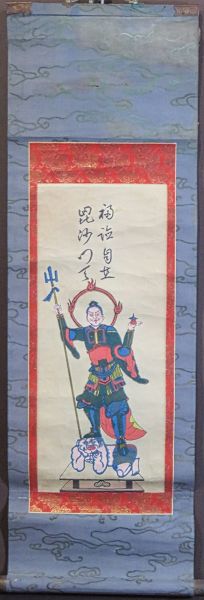 福詣自在
毘沙門天